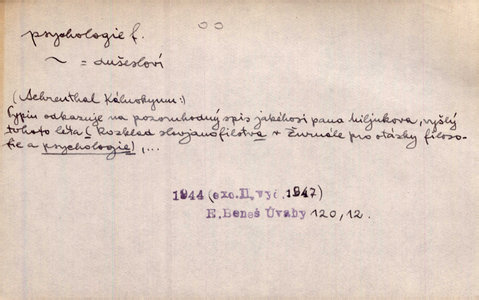 psychologie f.
~ = dušesloví
(Aehrenthal Kálnokymu:)
Pypin odkazuje na pozoruhodný spis jakéhosi pana Miljukova, vyšlý
tohoto léta (Rozklad slavjanofilstva v Žurnále pro otázky filoso-
fie a psychologie), ...
1944 (exc. II. vyd. 1947)
E. Beneš Úvahy 120,12.